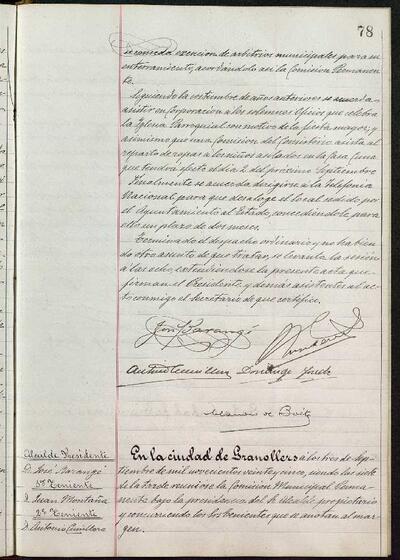 78
se conceda exencion de arbitrios municipales para su
enterramiento, acordándolo asi la Comisión Permanen-
te.
Siguiendo la costumbre de años anteriores se acuerda a-
sistir en Corporación a los solemnes Oficios que celebra
la Iglesia Parroquial con motivo de la fiesta mayor, y
asimismo que una Comision del Consistorio asista al
reparto de ropas a los niños asilados en la Casa Cuna
que tendrá efecto el dia 2 del próximo Septiembre
Finalmente se acuerda dirigirse a la Telefonica
Nacional para que desaloje el local cedido por
el Ayuntamiento al Estado, concediendole para
ello un plazo de dos meses.
Terminado el despacho ordinario y no habien
do otro asunto de que tratar, se levanta la sesión
a las ocho, extendiendose la presente acta que
firman el Presidente y demas asistentes al ac-
to conmigo el Secretario de que certifico.
José Barangé
Antonio Cumellas Domingo
de
Alcalde Presidente
D. José Barangé
1er Teniente
D. Juan Montaña
2º Teniente
D. Antonio Cumellas
En la ciudad de Granollers a los tres de Sep-
tiembre de mil novecientos veinte y cinco, siendo las siete
de la tarde reunióse la Comisión Municipal Perma-
nente bajo la presidencia del Sr. Alcalde propietario
y concurriendo los Sres Tenientes que se anotan al mar-
gen.